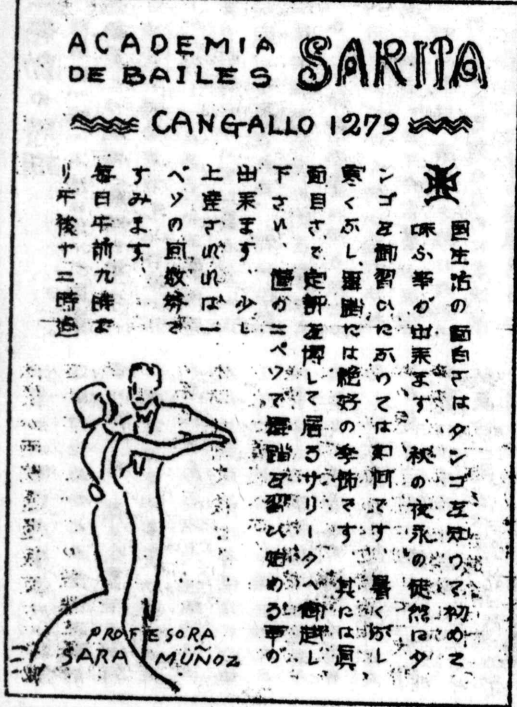 ACADEMIA
DE BAILES
SARITA
CANGALLO 1279
国生活の面白さはタンゴを知つて初めて
味ふ事が出来ます 秋の夜永の徒然にタ
ンゴを御習ひになつては如何です 暑くなし
寒くなし、舞踏には絶好の季節です 其には眞
面目さで定評を博して居るサリータへ御越し
下さい、僅か二ペソで舞踏を習ひ始める事が
出来ます、少し
上達されれば一
ペソの回数券で
すみます、
毎日午前九時よ
り午後十二時迄
PROFESORA
SARA MUÑOZ